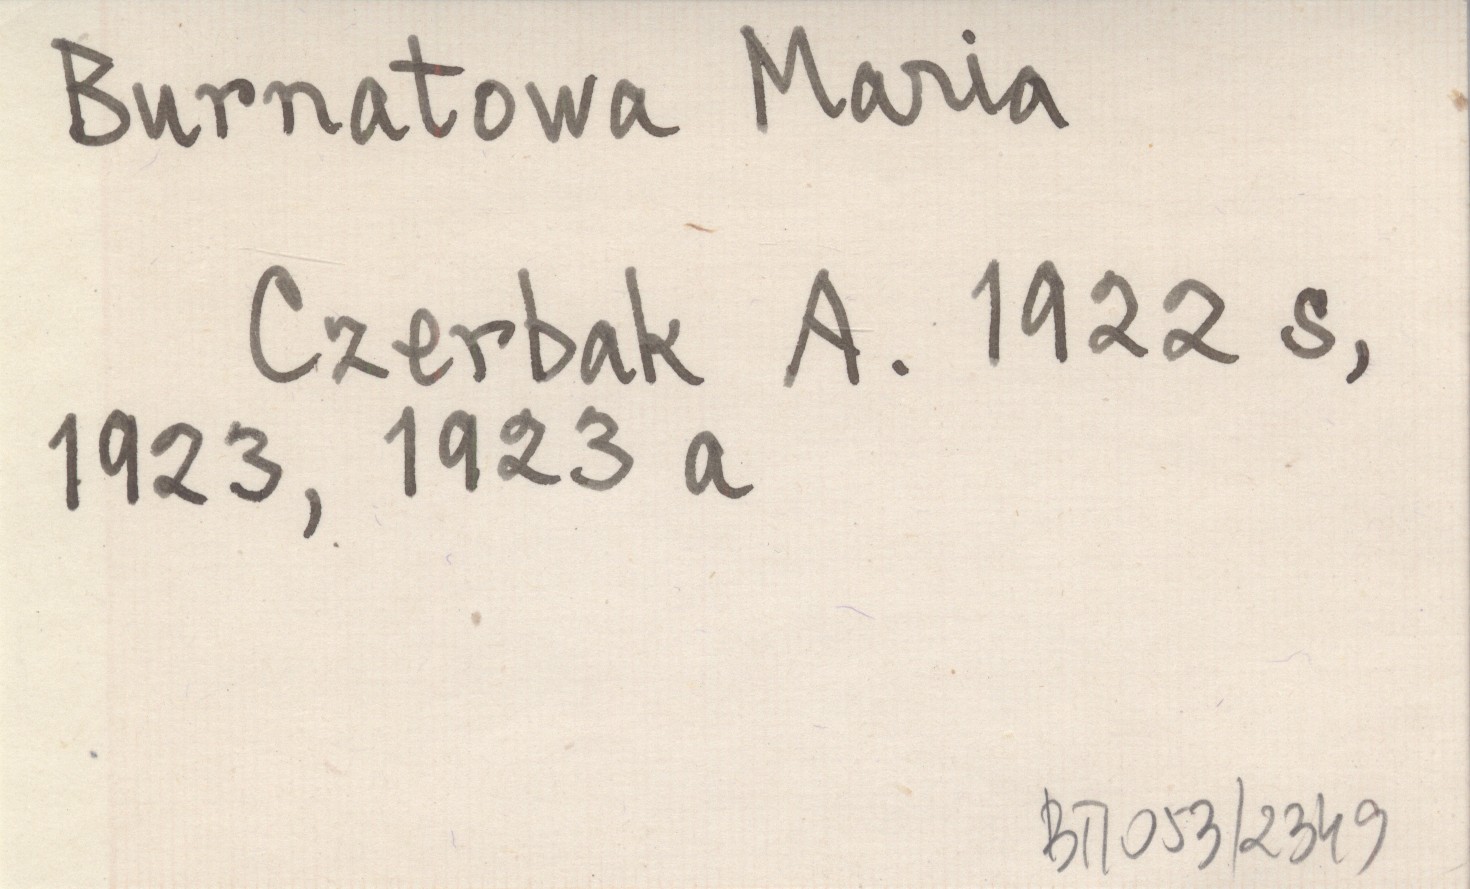 Burnatowa Maria
Czerbak A. 1922 s,
1923, 1923 a
ВП 053/2349